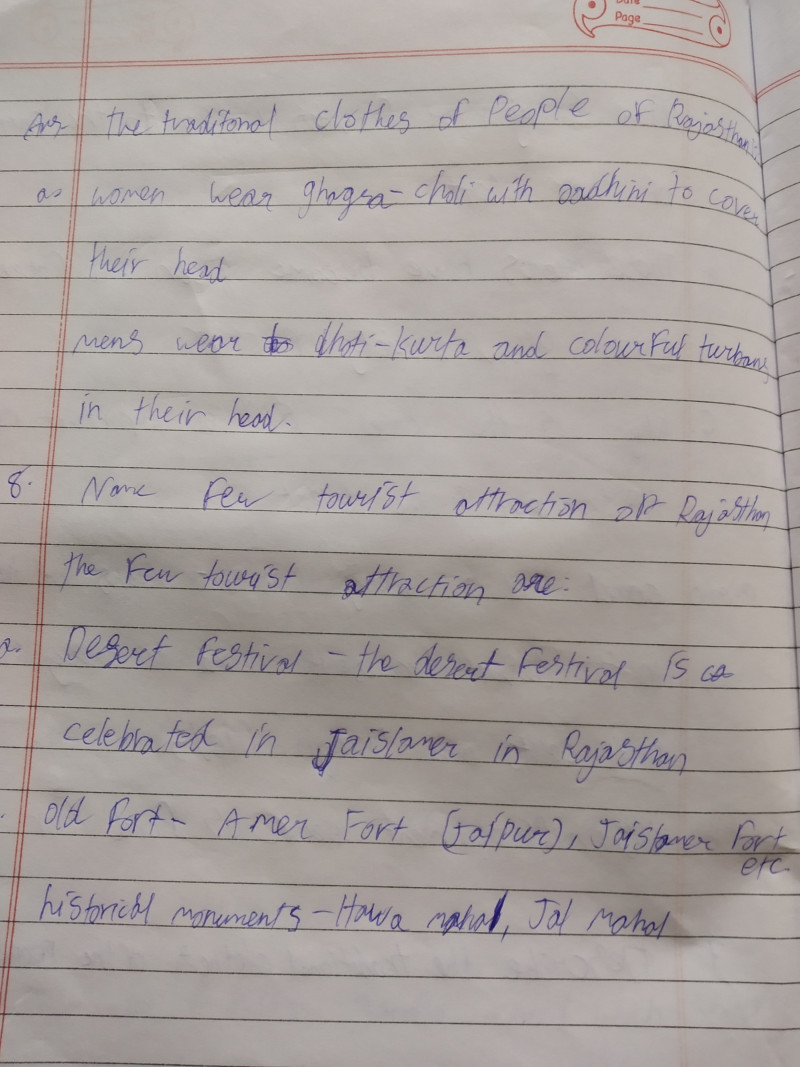 Date
Page
Ans The traditonal clothes of People of Rajasthan is
as women wear ghagra-choli with oadhini to cover
their head
mens wear dhoti-kurta and colourful turbans
in their head.
8. Name Few tourist attraction of Rajasthan
the Few tourist attraction are:
a. Desert Festival - the desert Festival is
celebrated in Jaislamer in Rajasthan
old fort - Amer Fort (Jaipur), Jaislamer Fort
etc
historical monuments - Hawa mahal, Jal Mahal